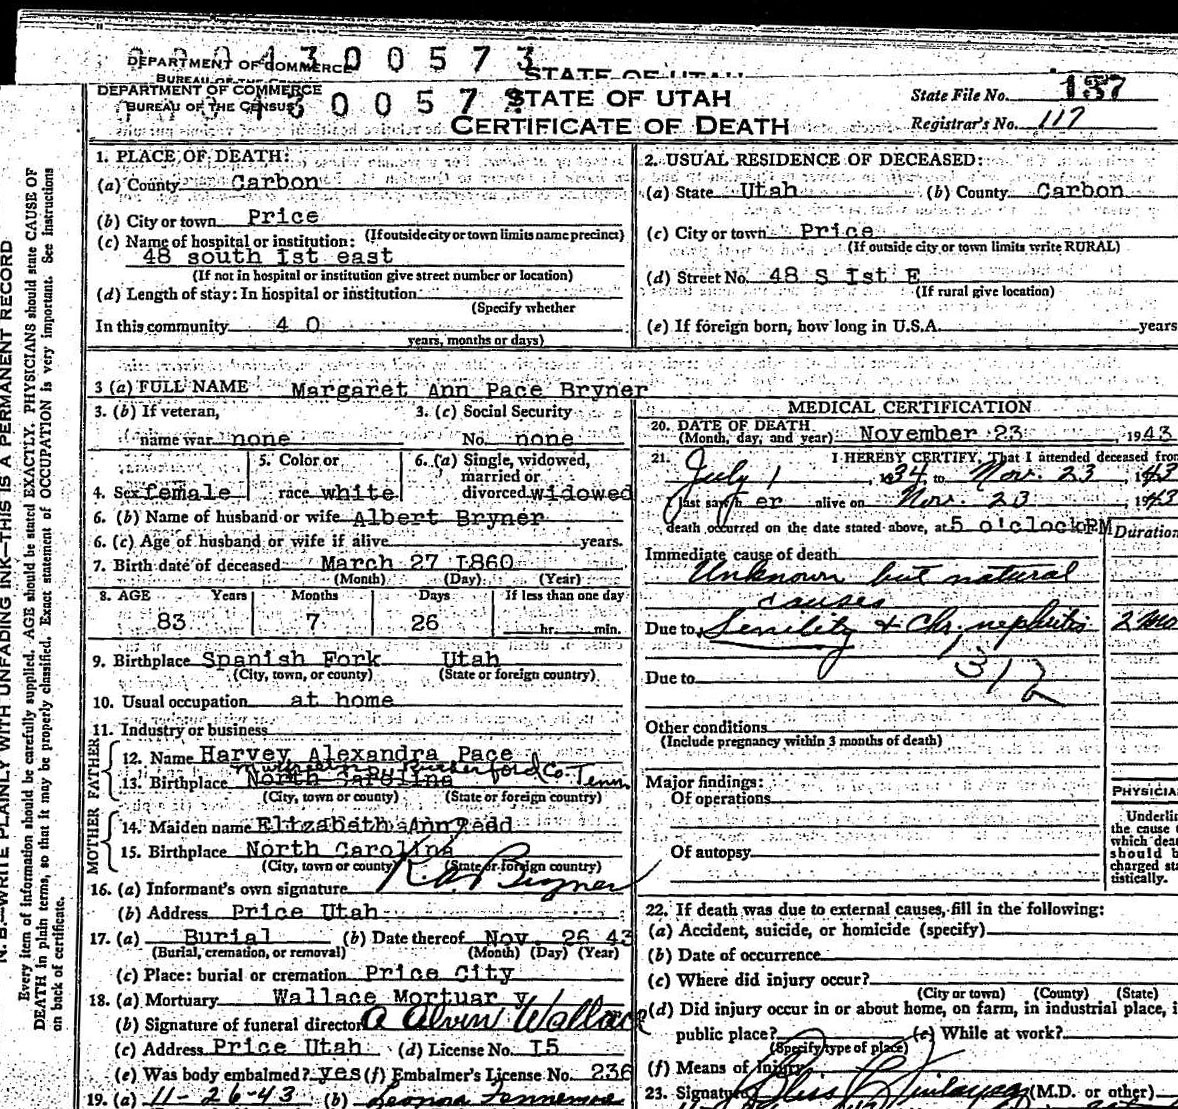 0004300573
DEPARTMENT OF COMMERCE
STATE OF UTAH
BUREAU OF THE CENSUS
DEPARTMENT OF COMMERCE
BUREAU OF THE CENSUS
STATE OF UTAH
CERTIFICATE OF DEATH
State File No. 157
Registrar's No. 117
N. B.—WRITE PLAINLY WITH UNFADING INK—THIS IS A PERMANENT RECORD
Every item of information should be carefully supplied. AGE should be stated EXACTLY. PHYSICIANS should state CAUSE OF
DEATH in plain terms, so that it may be properly classified. Exact statement of OCCUPATION is very important. See instructions
on back of certificate.
1. PLACE OF DEATH:
(a) County Carbon
(b) City or town Price
(If outside city or town limits name precinct)
(c) Name of hospital or institution:
48 south Ist east
(If not in hospital or institution give street number or location)
(d) Length of stay: In hospital or institution
(Specify whether
In this community 4 0
years, months or days)
2. USUAL RESIDENCE OF DECEASED:
(a) State Utah (b) County Carbon
(c) City or town Price
(If outside city or town limits write RURAL)
(d) Street No. 48 S Ist E
(If rural give location)
(e) If foreign born, how long in U.S.A. years
3 (a) FULL NAME Margaret Ann Pace Bryner
3. (b) If veteran,
name war none
3. (c) Social Security
No. none
4. Sex female
5. Color or
race white
6. (a) Single, widowed,
married or
divorced widowed
6. (b) Name of husband or wife Albert Bryner
6. (c) Age of husband or wife if alive years.
7. Birth date of deceased March 27 I860
(Month) (Day) (Year)
8. AGE Years Months Days If less than one day
83 7 26 hr. min.
9. Birthplace Spanish Fork Utah
(City, town, or county) (State or foreign country)
10. Usual occupation at home
11. Industry or business
FATHER
12. Name Harvey Alexandra Pace
Rutherford Co. Tenn
13. Birthplace North Carolina
(City, town or county) (State or foreign country)
MOTHER
14. Maiden name Elizabeth Ann Redd
15. Birthplace North Carolina
(City, town or county) (State or foreign country)
16. (a) Informant's own signature Bryner
(b) Address Price Utah
17. (a) Burial (b) Date thereof Nov. 26 43
(Burial, cremation, or removal) (Month) (Day) (Year)
(c) Place: burial or cremation Price City
18. (a) Mortuary Wallace Mortuar y
(b) Signature of funeral director A Alvin Wallace
(c) Address Price Utah (d) License No. I5
(e) Was body embalmed? yes (f) Embalmer's License No. 236
19. (a) 11-26-43 (b) Leonora
MEDICAL CERTIFICATION
20. DATE OF DEATH
(Month, day, and year) November 23, 1943
21. I HEREBY CERTIFY, That I attended deceased from
July 1, 1934 to Nov. 23, 1943
I last saw h er alive on Nov. 23, 1943
death occurred on the date stated above, at 5 o'clock PM
Duration
Immediate cause of death
Unknown but natural
causes
Due to Senility & Chr. nephritis 2 mo
312
Due to
Other conditions
(Include pregnancy within 3 months of death)
Major findings:
Of operations
Of autopsy
PHYSICIA
Underlin
the cause
which dea
should b
charged sta
tistically.
22. If death was due to external causes, fill in the following:
(a) Accident, suicide, or homicide (specify)
(b) Date of occurrence
(c) Where did injury occur?
(City or town) (County) (State)
(d) Did injury occur in or about home, on farm, in industrial place, i
public place? (e) While at work?
(Specify type of place)
(f) Means of Injury
23. Signature (M.D. or other)